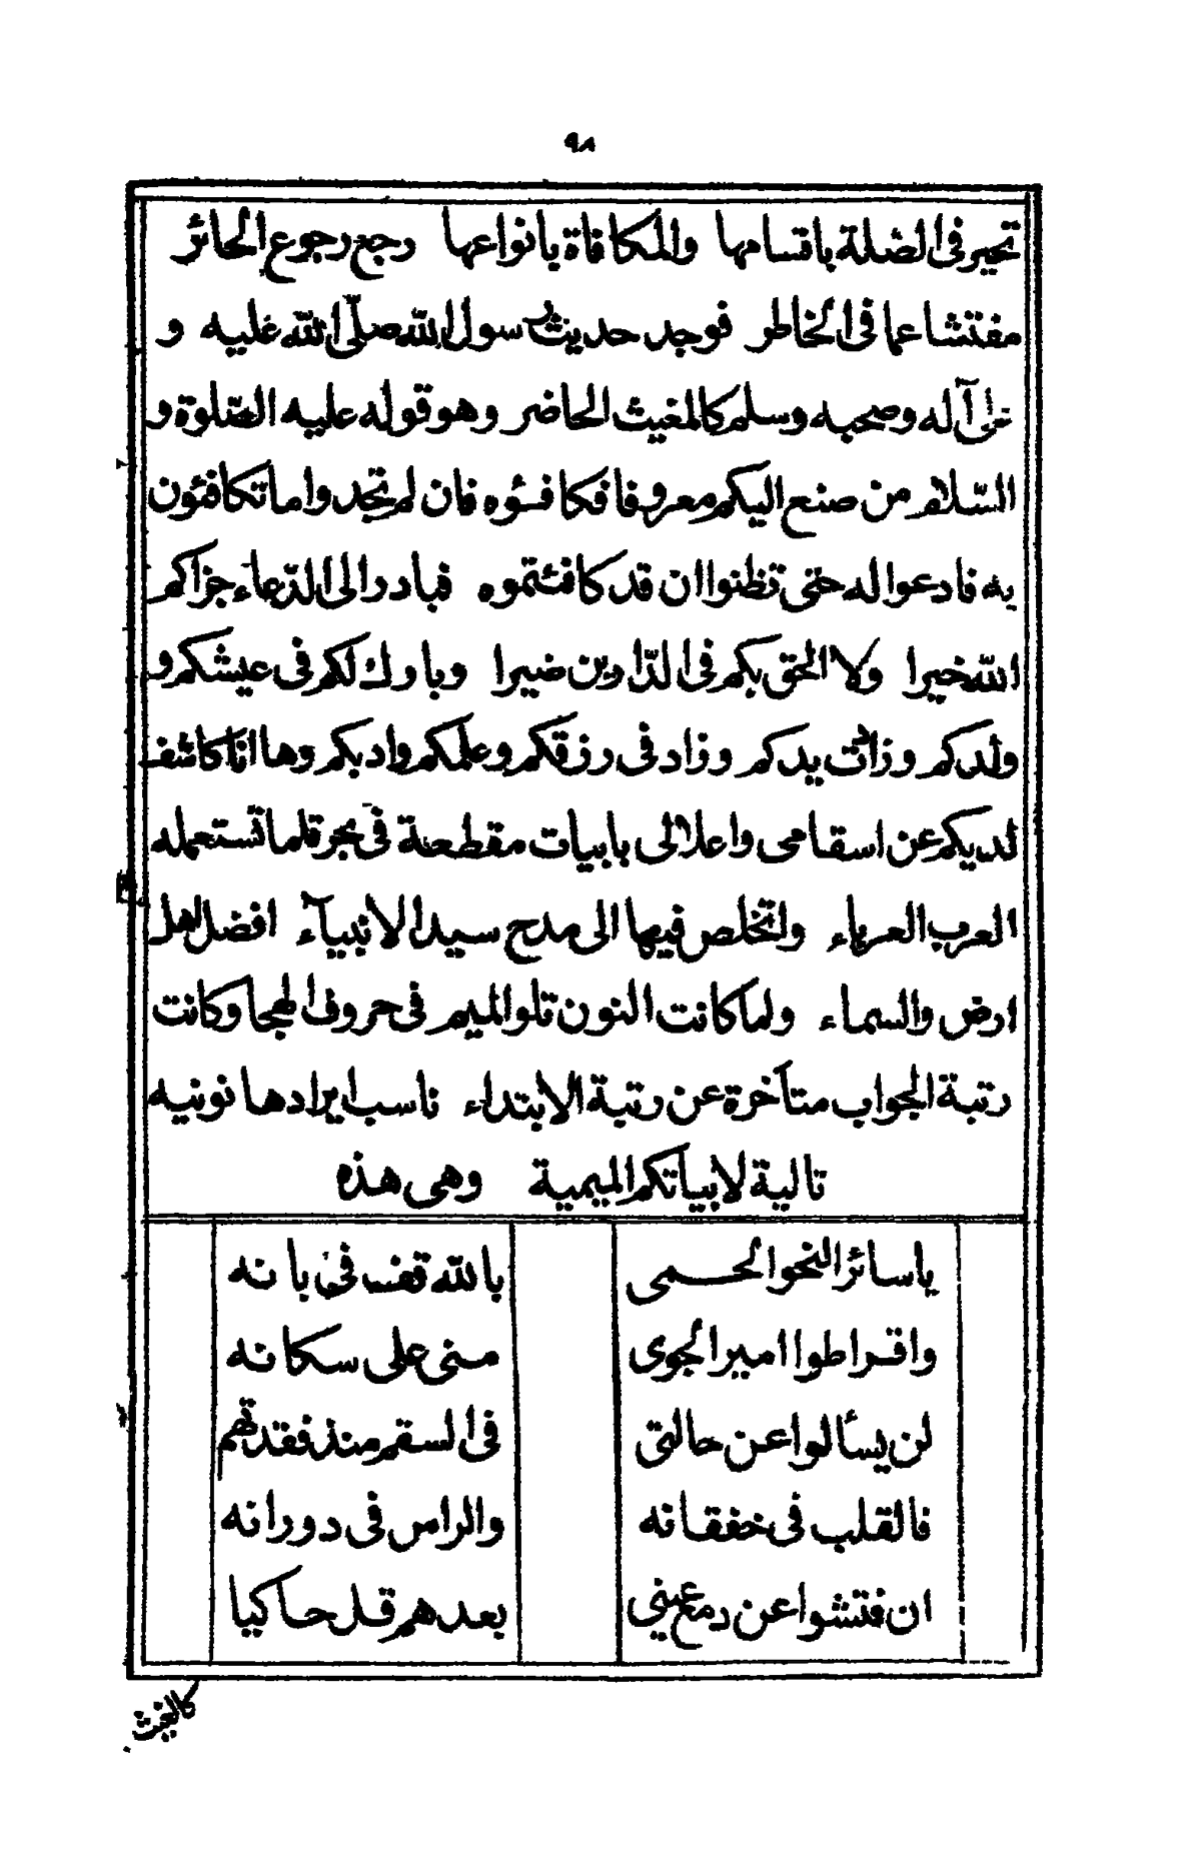 ٩٨
تحير فى الصلة باقسامها والمكافاة بانواعها رجع رجوع الحائر
مفتشا عما فى الخاطر فوجد حديث رسول الله صلّى الله عليه و
على آله وصحبه وسلم كالمغيث الحاضر وهو قوله عليه الصّلوة و
السّلام من صنع اليكم معروفا فكافئوه فان لم تجدوا ما تكافئون
به فادعوا له حتى تظنوا ان قد كافئتموه فبادر الى الدّعاء جزاكم
الله خيرا ولا الحق بكم فى الدّارين ضيرا وبارك لكم فى عيشكم و
ولدكم وزانت يدكم وزاد فى رزقكم وعلمكم وادبكم وها انا كاشف
لديكم عن اسقامى واعلالى بابيات مقطعة فى بحر قلما تستعمله
العرب العرباء واتخلص فيها الى مدح سيد الانبيآء افضل اهل
ارض والسماء ولما كانت النون تلو الميم فى حروف الهجا وكانت
رتبة الجواب متأخرة عن رتبة الابتداء ناسب ايرادها نونيه
تالية لابياتكم الميمية وهى هذه
ياسائر النحو الحمى بالله قف فى بانه
واقراطوا امير الجوى منى على سكانه
لن يسألوا عن حالتى فى السقم منذ فقدتهم
فالقلب فى خفقانه والراس فى دورانه
ان فتشوا عن دمع عينى بعدهم قل حاكيا
كالغيث